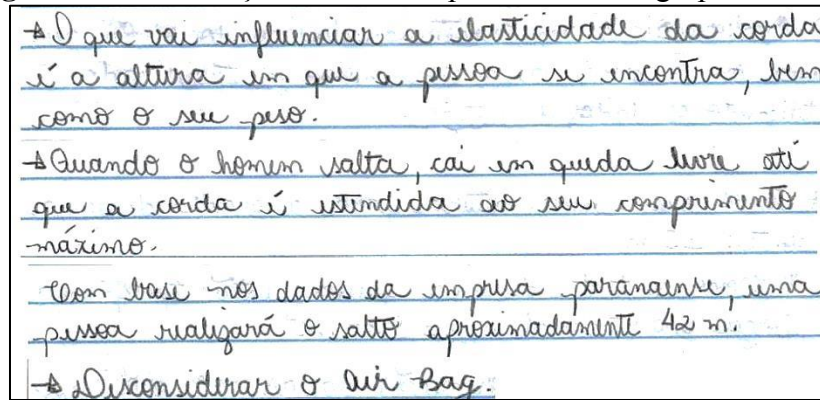 → O que vai influenciar a elasticidade da corda
é a altura em que a pessoa se encontra, bem
como o seu peso.
→ Quando o homem salta, cai em queda livre até
que a corda é estendida ao seu comprimento
máximo.
Com base nos dados da empresa paranaense, uma
pessoa realizará o salto aproximadamente 42 m.
→ Desconsiderar o Air Bag.